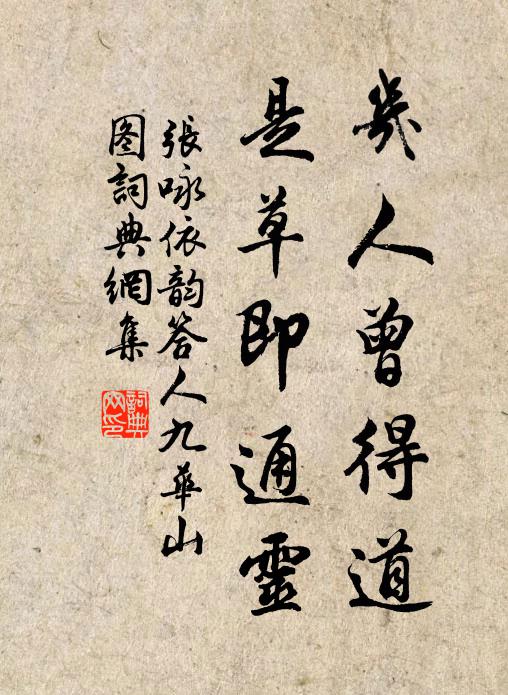 幾人曾得道
是草即通靈
張咏依韵答人九華山
图詞典網集
詞典
网印